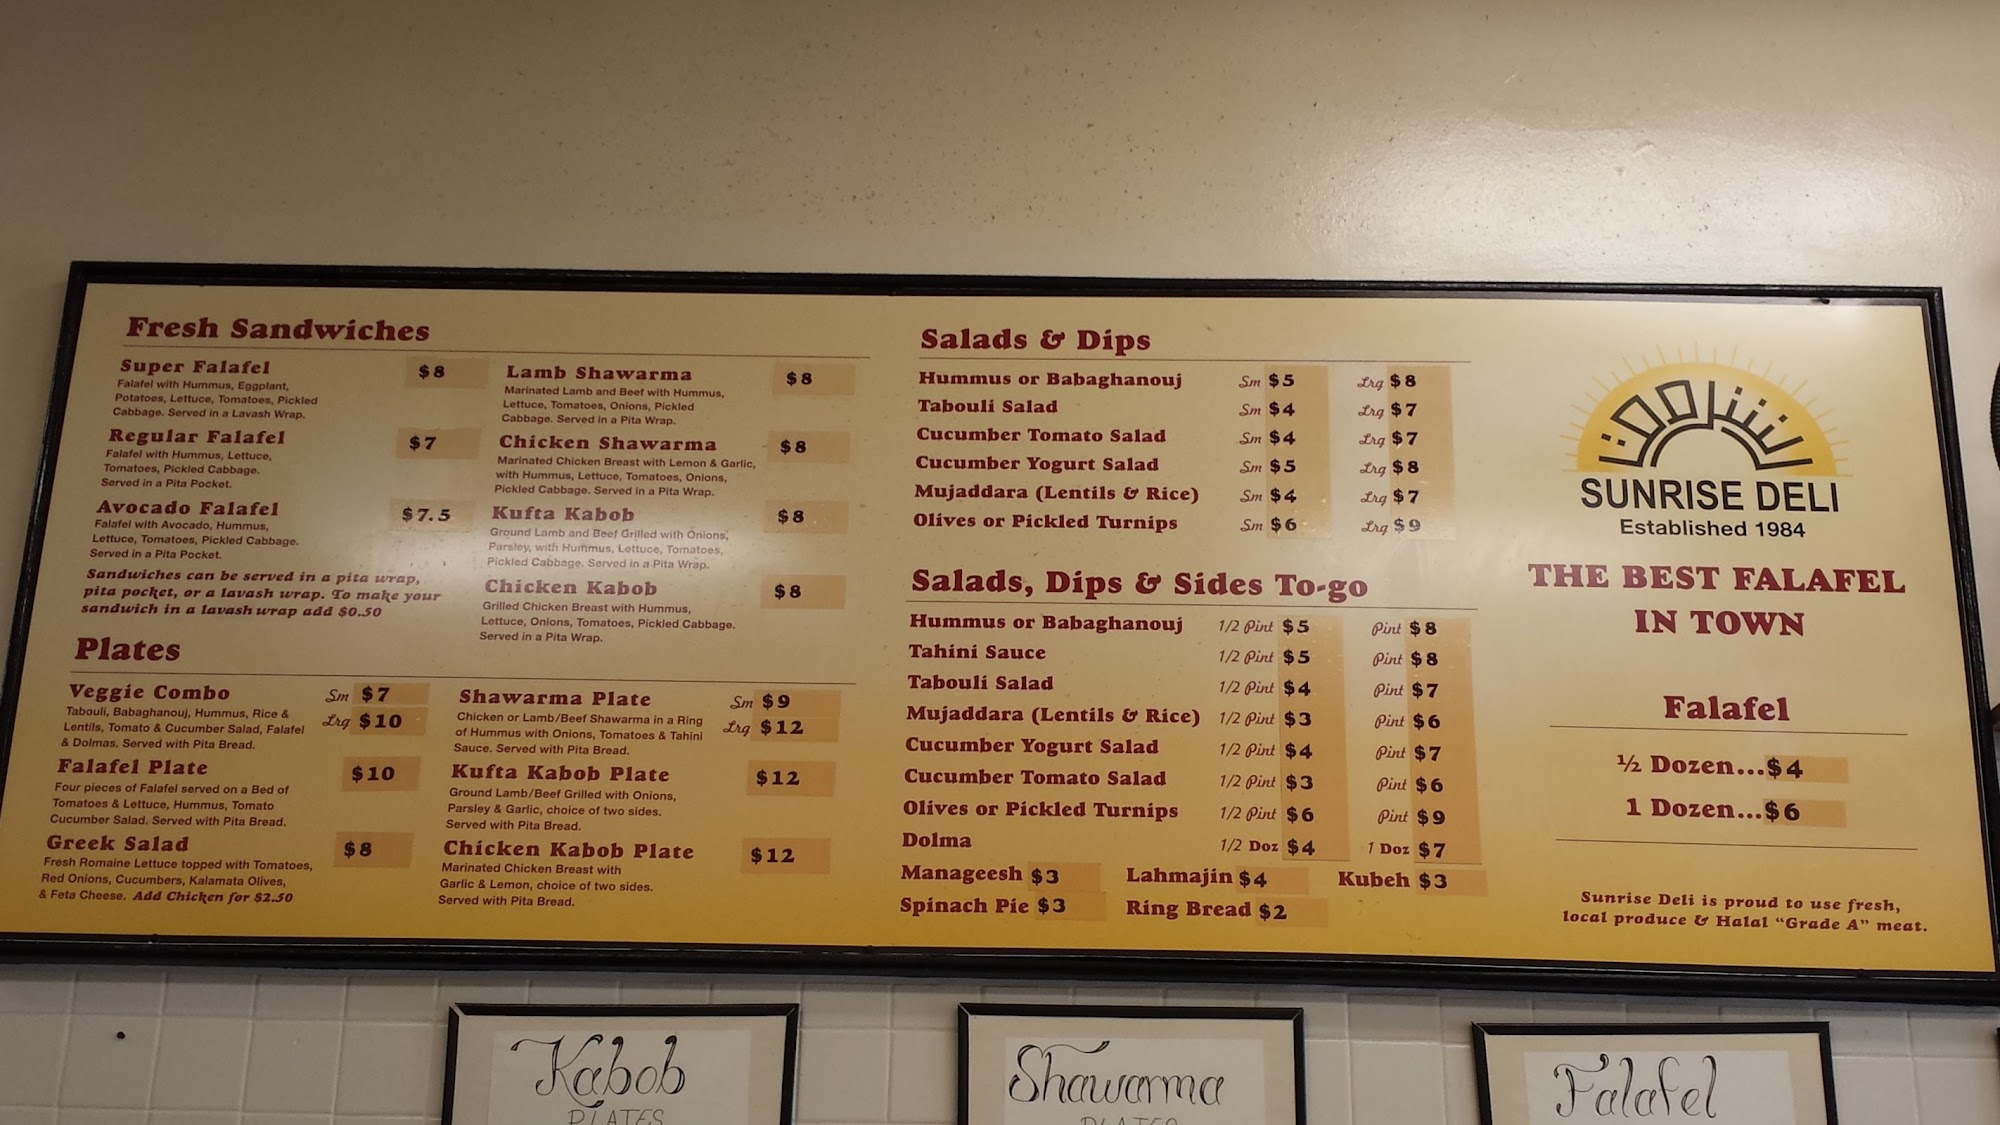 Fresh Sandwiches
Super Falafel $8
Falafel with Hummus, Eggplant,
Potatoes, Lettuce, Tomatoes, Pickled
Cabbage. Served in a Lavash Wrap.
Regular Falafel $7
Falafel with Hummus, Lettuce,
Tomatoes, Pickled Cabbage.
Served in a Pita Pocket.
Avocado Falafel $7.5
Falafel with Avocado, Hummus,
Lettuce, Tomatoes, Pickled Cabbage.
Served in a Pita Pocket.
Sandwiches can be served in a pita wrap,
pita pocket, or a lavash wrap. To make your
sandwich in a lavash wrap add $0.50
Lamb Shawarma $8
Marinated Lamb and Beef with Hummus,
Lettuce, Tomatoes, Onions, Pickled
Cabbage. Served in a Pita Wrap.
Chicken Shawarma $8
Marinated Chicken Breast with Lemon & Garlic,
with Hummus, Lettuce, Tomatoes, Onions,
Pickled Cabbage. Served in a Pita Wrap.
Kufta Kabob $8
Ground Lamb and Beef Grilled with Onions,
Parsley, with Hummus, Lettuce, Tomatoes,
Pickled Cabbage. Served in a Pita Wrap.
Chicken Kabob $8
Grilled Chicken Breast with Hummus,
Lettuce, Onions, Tomatoes, Pickled Cabbage.
Served in a Pita Wrap.
Plates
Veggie Combo Sm $7
Lrg $10
Tabouli, Babaghanouj, Hummus, Rice &
Lentils, Tomato & Cucumber Salad, Falafel
& Dolmas. Served with Pita Bread.
Falafel Plate $10
Four pieces of Falafel served on a Bed of
Tomatoes & Lettuce, Hummus, Tomato
Cucumber Salad. Served with Pita Bread.
Greek Salad $8
Fresh Romaine Lettuce topped with Tomatoes,
Red Onions, Cucumbers, Kalamata Olives,
& Feta Cheese. Add Chicken for $2.50
Shawarma Plate Sm $9
Lrg $12
Chicken or Lamb/Beef Shawarma in a Ring
of Hummus with Onions, Tomatoes & Tahini
Sauce. Served with Pita Bread.
Kufta Kabob Plate $12
Ground Lamb/Beef Grilled with Onions,
Parsley & Garlic, choice of two sides.
Served with Pita Bread.
Chicken Kabob Plate $12
Marinated Chicken Breast with
Garlic & Lemon, choice of two sides.
Served with Pita Bread.
Salads & Dips
Hummus or Babaghanouj Sm $5 Lrg $8
Tabouli Salad Sm $4 Lrg $7
Cucumber Tomato Salad Sm $4 Lrg $7
Cucumber Yogurt Salad Sm $5 Lrg $8
Mujaddara (Lentils & Rice) Sm $4 Lrg $7
Olives or Pickled Turnips Sm $6 Lrg $9
Salads, Dips & Sides To-go
Hummus or Babaghanouj 1/2 Pint $5 Pint $8
Tahini Sauce 1/2 Pint $5 Pint $8
Tabouli Salad 1/2 Pint $4 Pint $7
Mujaddara (Lentils & Rice) 1/2 Pint $3 Pint $6
Cucumber Yogurt Salad 1/2 Pint $4 Pint $7
Cucumber Tomato Salad 1/2 Pint $3 Pint $6
Olives or Pickled Turnips 1/2 Pint $6 Pint $9
Dolma 1/2 Doz $4 1 Doz $7
Manageesh $3 Lahmajin $4 Kubeh $3
Spinach Pie $3 Ring Bread $2
SUNRISE DELI
Established 1984
THE BEST FALAFEL
IN TOWN
Falafel
½ Dozen...$4
1 Dozen...$6
Sunrise Deli is proud to use fresh,
local produce & Halal "Grade A" meat.
Kabob
PLATES
Shawarma
PLATES
Falafel